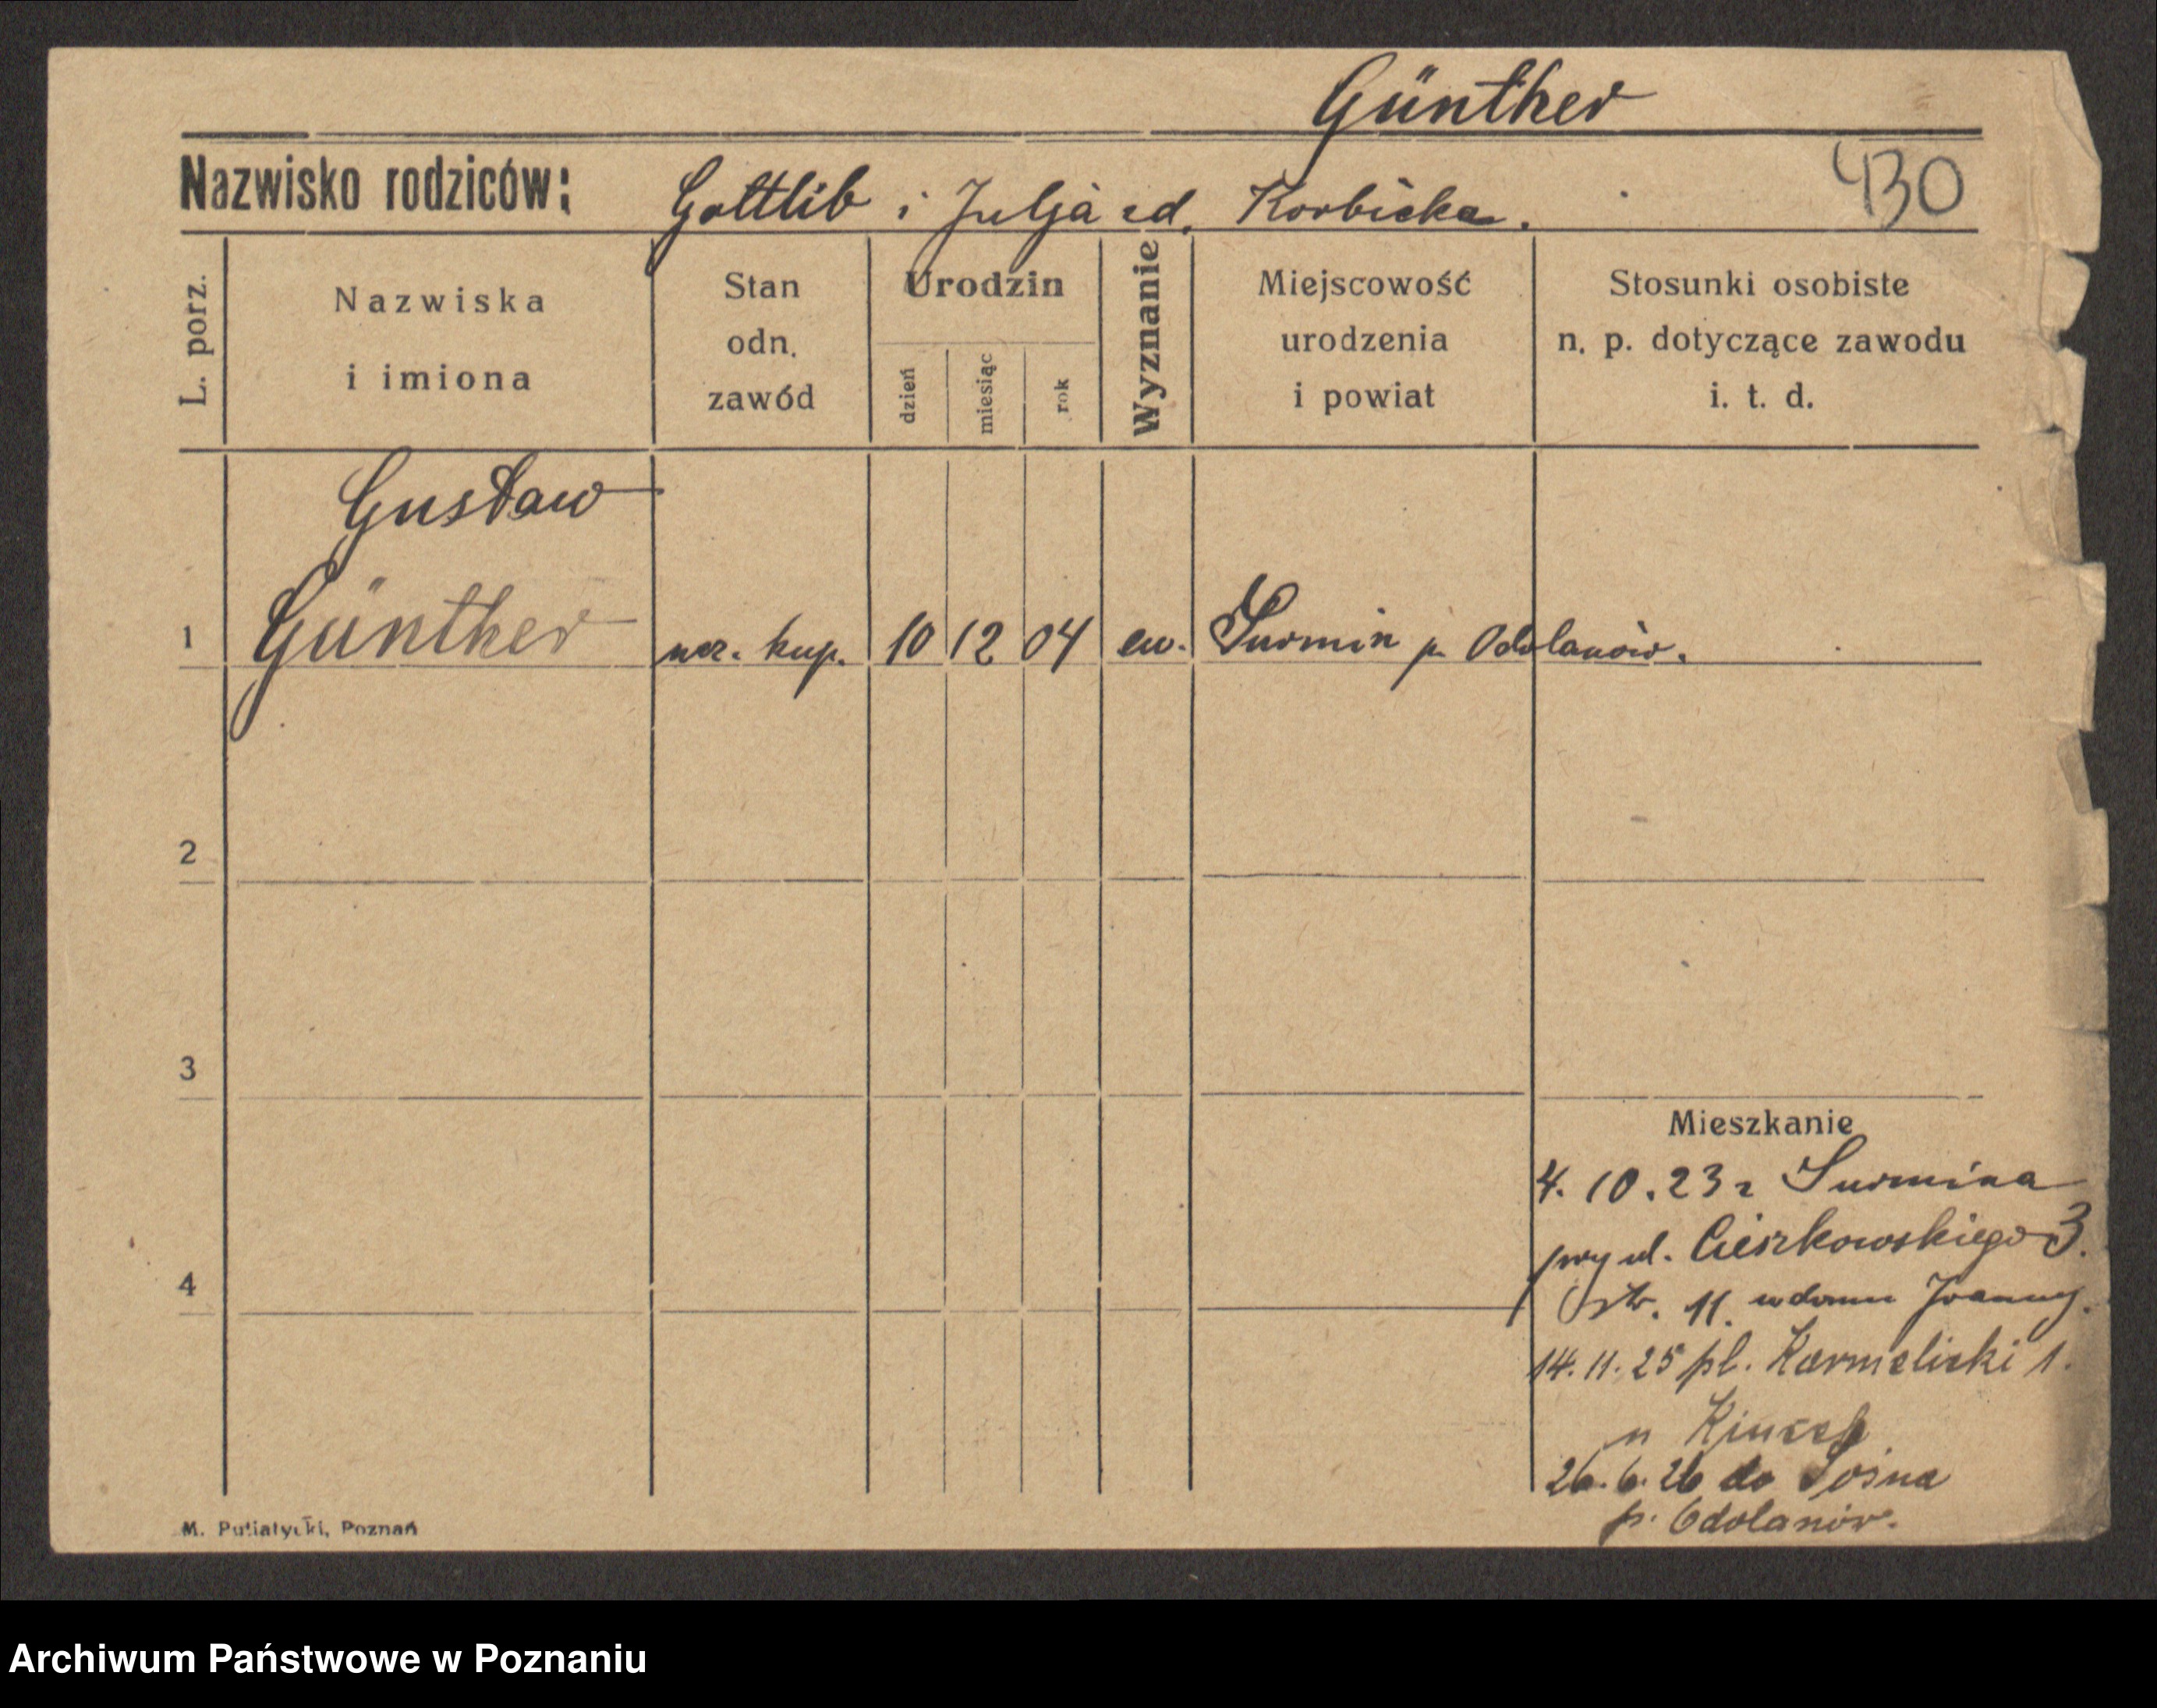 Günther
Nazwisko rodziców: Gottlib i Julja zd. Korbicka.
430
L. porz.
Nazwiska
i imiona
Stan
odn.
zawód
Urodzin
dzień
miesiąc
rok
Wyznanie
Miejscowość
urodzenia
i powiat
Stosunki osobiste
n. p. dotyczące zawodu
i. t. d.
Gustaw
1 Günther ucz. kup. 10 12 04 ew. Surmin p. Odolanów.
2
3
4
Mieszkanie
4. 10. 23 z Surmina
przy ul. Cieszkowskiego 3.
str. 11. w domu
14. 11. 25 pl. Karmelicki 1.
u
26. 6. 26 do Sośna
p. Odolanów.
M. Putiatycki, Poznań
Archiwum Państwowe w Poznaniu